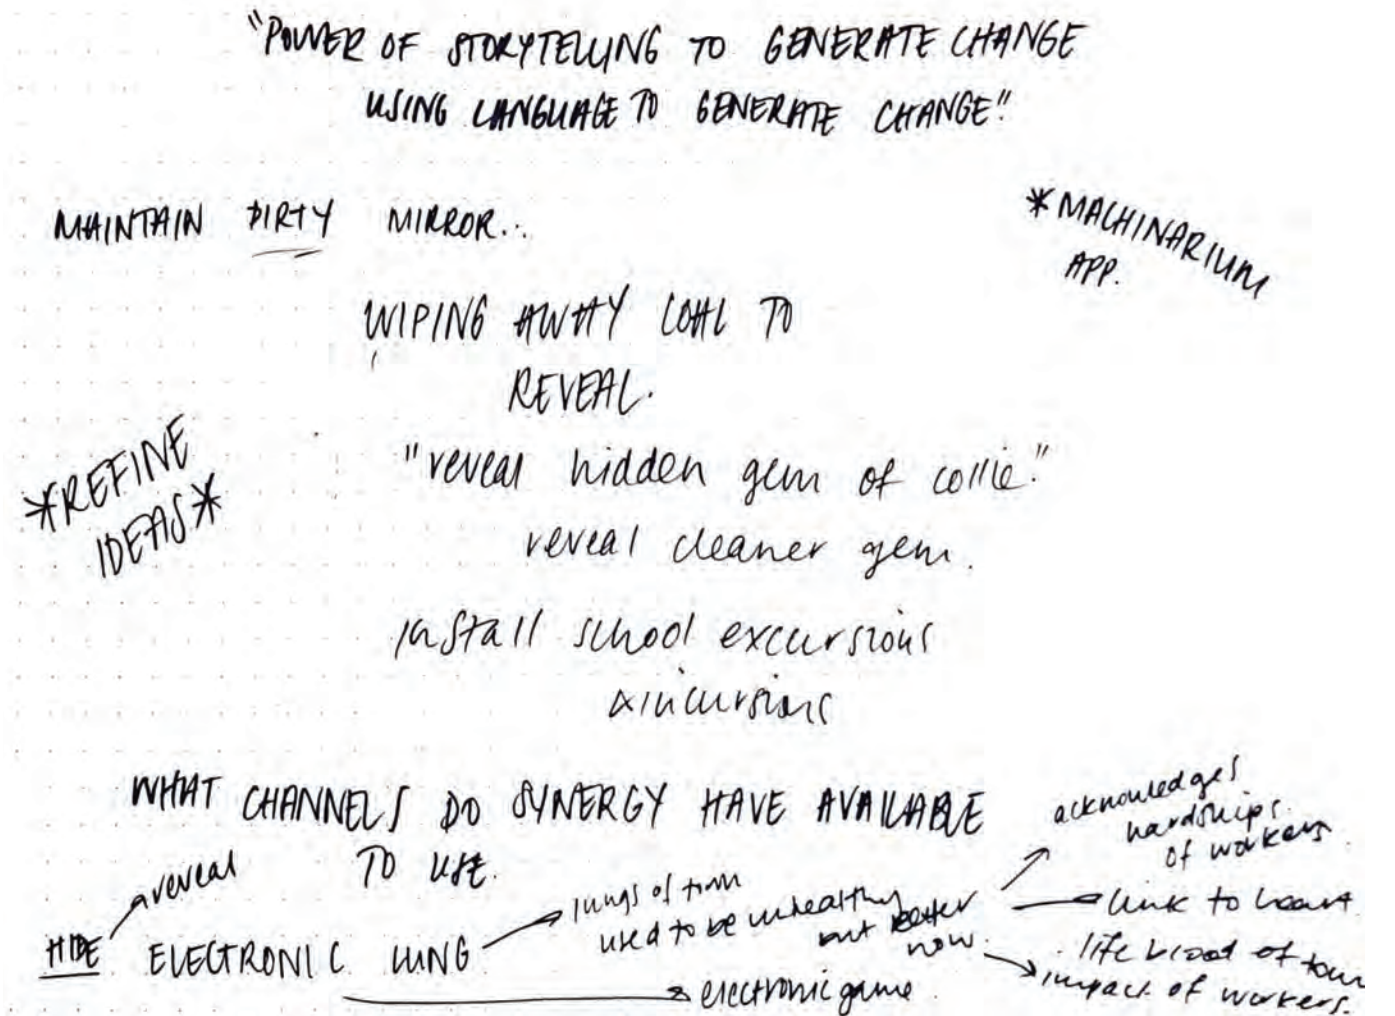 "POWER OF STORYTELLING TO GENERATE CHANGE
USING LANGUAGE TO GENERATE CHANGE"
MAINTAIN DIRTY MIRROR...
*MACHINARIUM
APP.
WIPING AWAY COAL TO
REVEAL.
*REFINE
IDEAS*
"reveal hidden gem of collie."
reveal cleaner gem.
install school excursions
& incursions
WHAT CHANNELS DO SYNERGY HAVE AVAILABLE
TO USE.
reveal
HIDE ELECTRONIC LUNG
lungs of town
used to be unhealthy
but better
now.
acknowledges
hardships
of workers.
link to heart
life blood of town
impact of workers.
electronic game